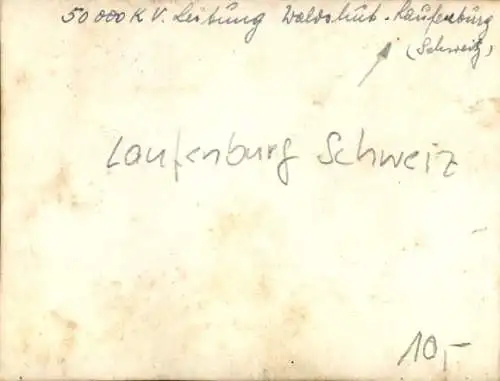 50000 K V. Leitung Waldshut-Laufenburg
(Schweiz)
Laufenburg Schweiz
10,-